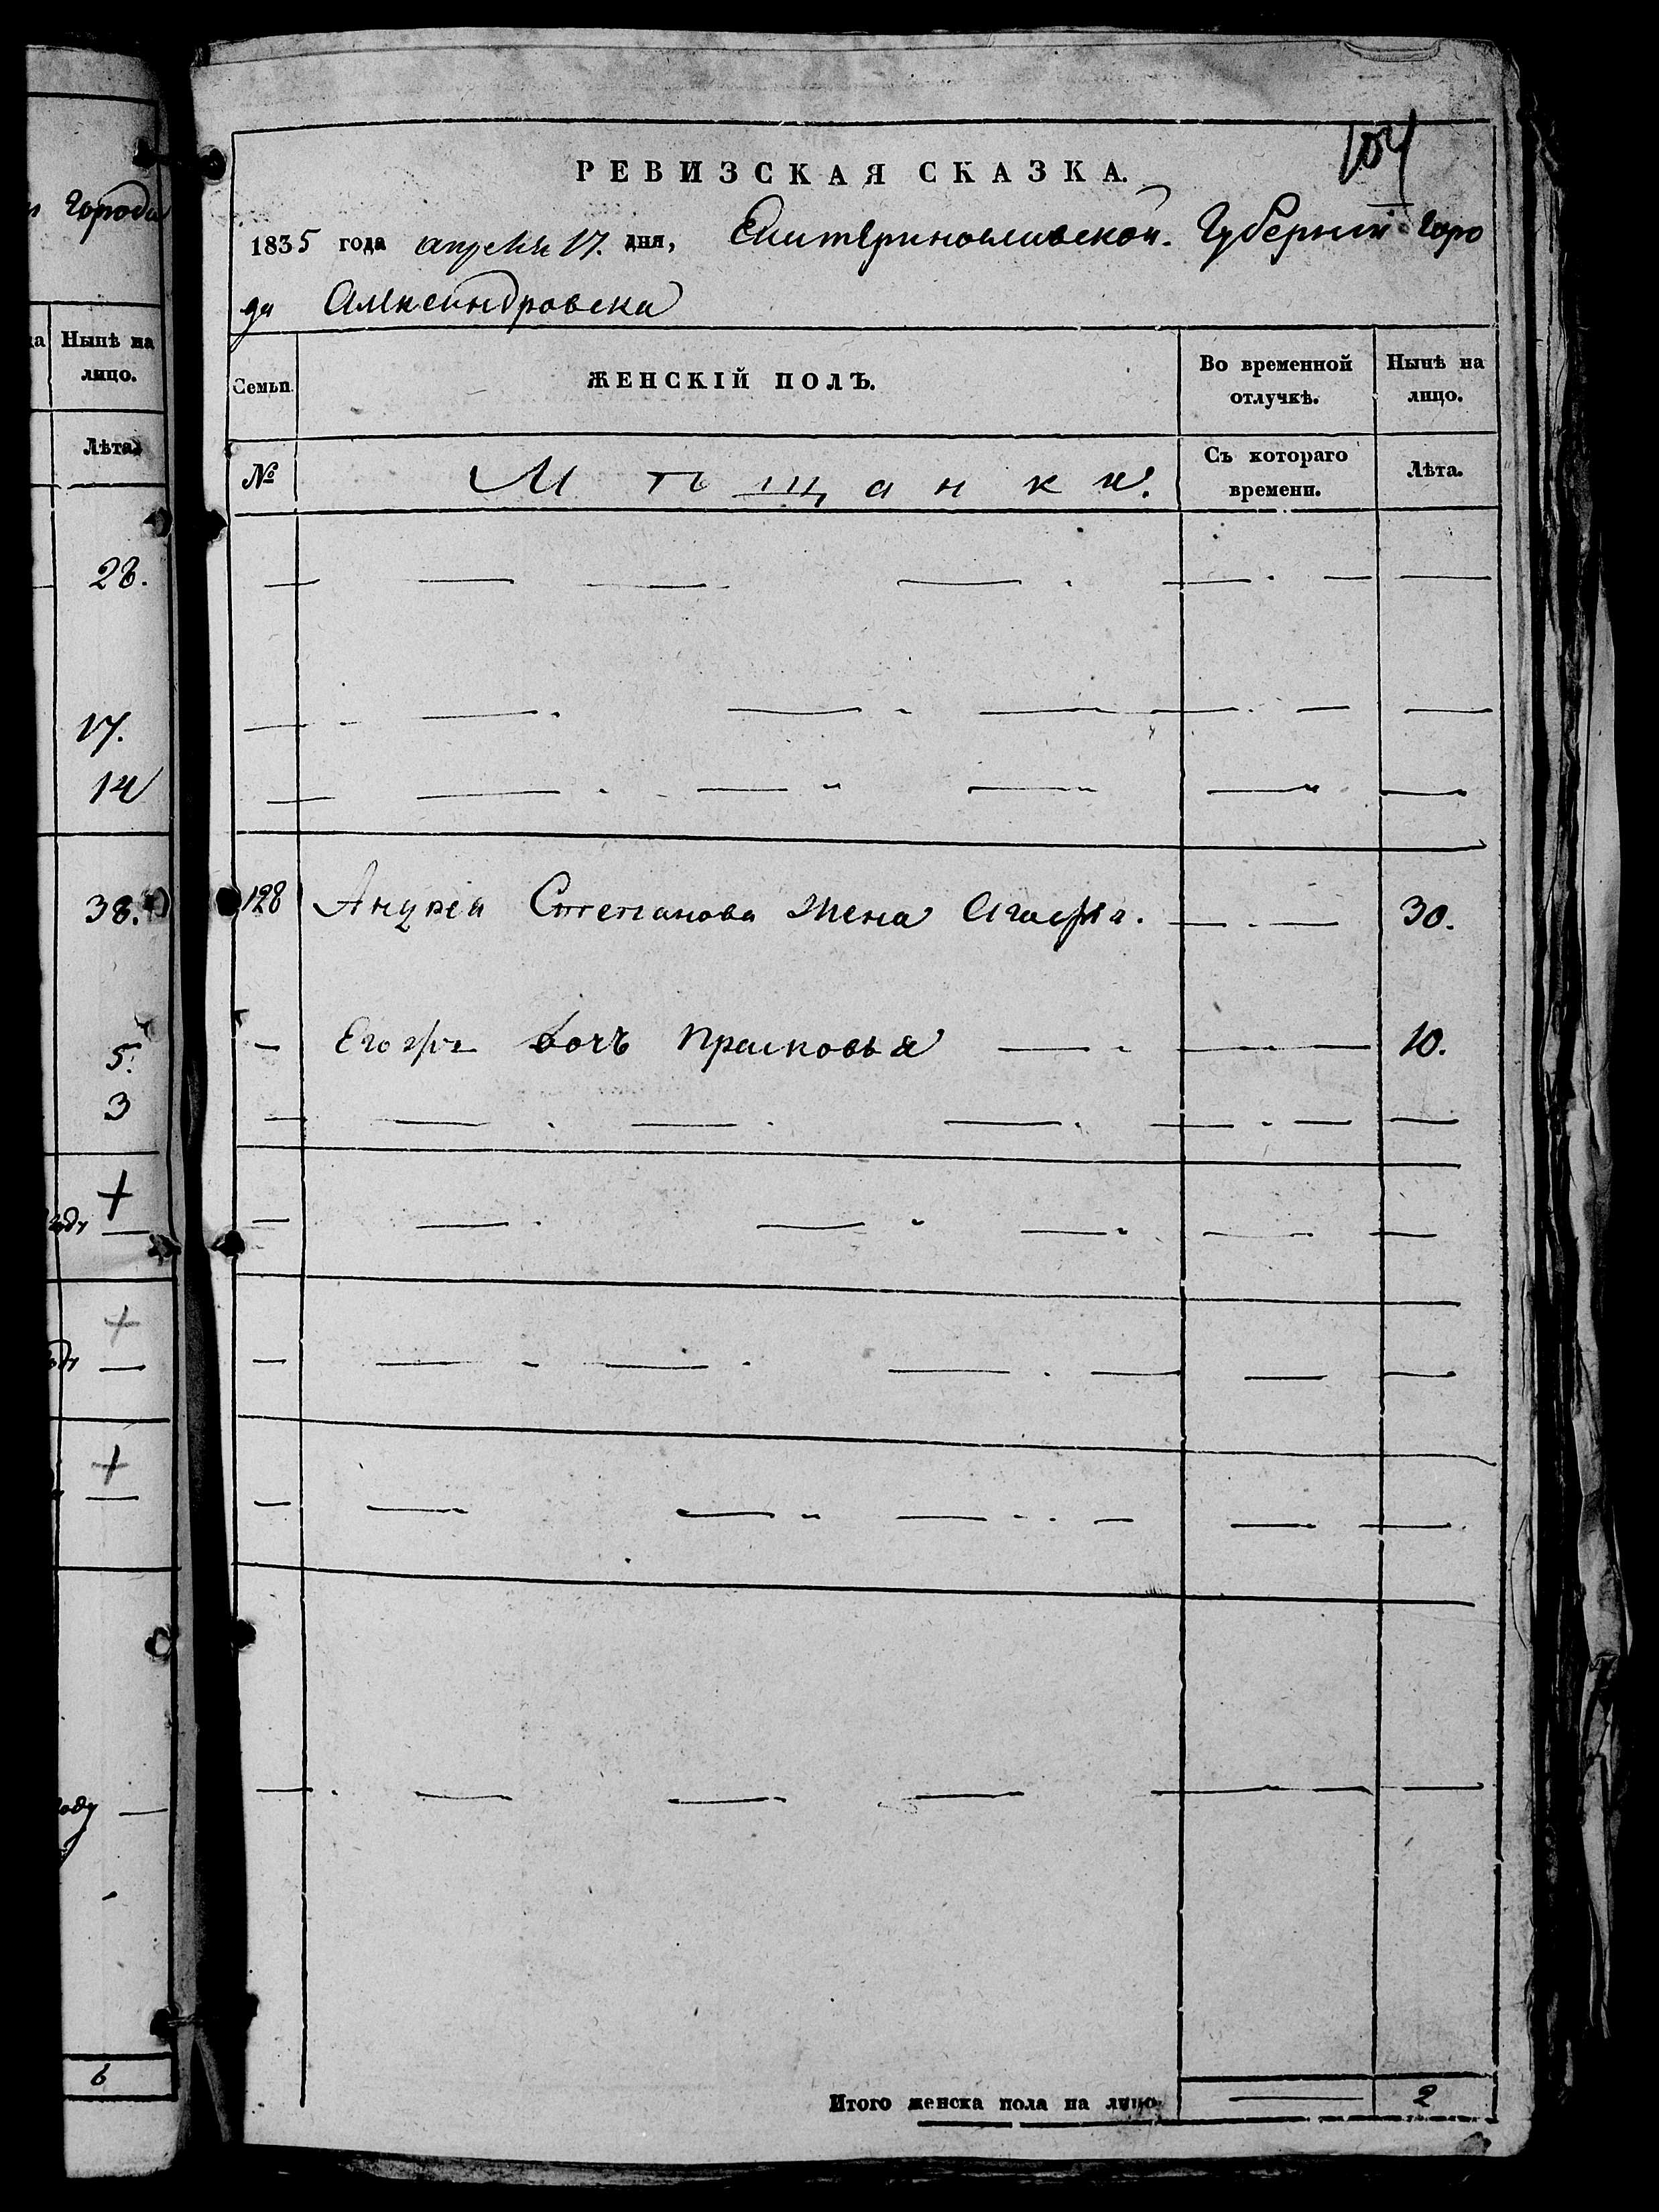 и Города
Нынѣ на
лицо.
Лѣта.
28.
17.
14
38.
5.
3
+
году
+
+
году
6
104
РЕВИЗСКАЯ СКАЗКА.
1835 года апреля 17. дня, Екатеринославской. Губернiи Горо
да Александровска
Семьи. ЖЕНСКІЙ ПОЛЪ. Во временной отлучкѣ. Нынѣ на лицо.
№ Мѣщанки. Съ котораго времени. Лѣта.
128 Андрея Степанова жена Агафья. 30.
Его дочъ Прасковья 10.
Итого женска пола на лицо. 2